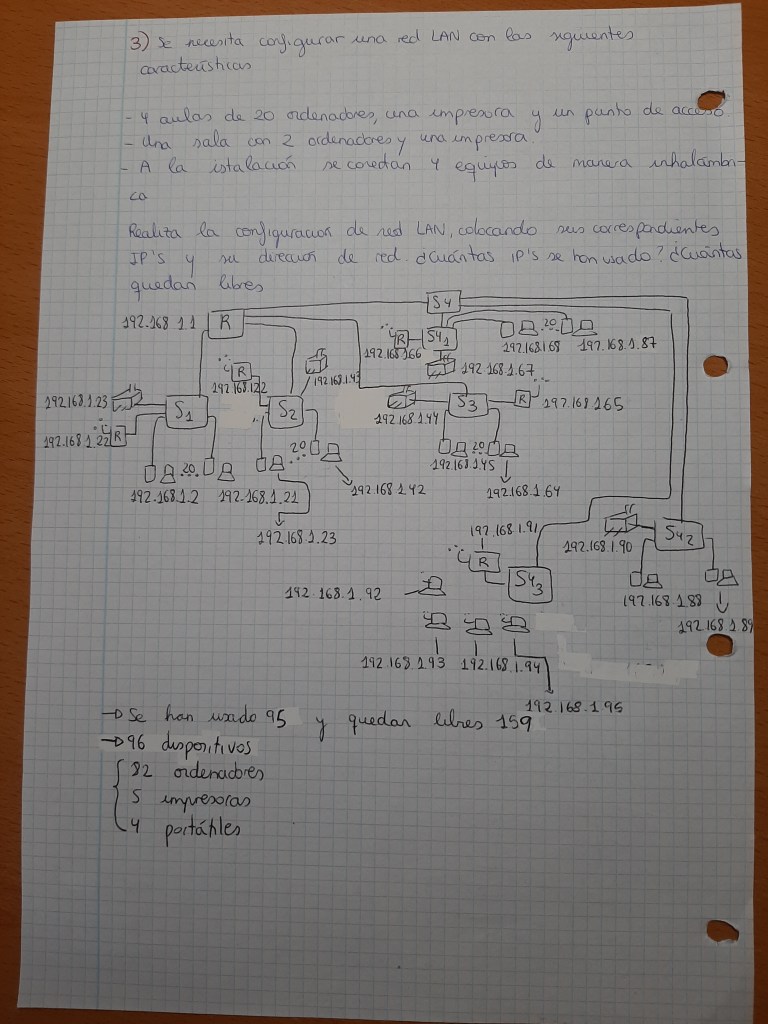 3) Se necesita configurar una red LAN con las siguientes
características
- 4 aulas de 20 ordenadores, una impresora y un punto de acceso
- Una sala con 2 ordenadores y una impresora.
- A la istalación se conectan 4 equipos de manera inhalámbri-
ca
Realiza la configuración de red LAN, colocando sus correspondientes
IP'S y su dirección de red. ¿Cuántas IP's se han usado? ¿Cuántas
quedan libres
192.168 1.1 R S4
R S4₁ 20
192.168 1 66 192.168 1 68 192.168.1.87
192.168.1.67
R 192.168.1.43
192.168.1 22
192.168.1.23 S₁ S₂ S₃ R 192.168 1 65
192.168.1.22 R 192.168.1.44
20 20 20
192.168.1.2 192.168.1.21 192.168.1.42 192.168.1.45 192.168.1.64
192.168.1.23
192.168.1.91 192.168.1.90 S4₂
R S4₃
192.168.1.92 192.168.1.88 192.168.1.89
192.168.1 93 192.168.1.94
192.168.1.95
→ Se han usado 95 y quedan libres 159
→ 96 dispositivos
82 ordenadores
5 impresoras
4 portátiles